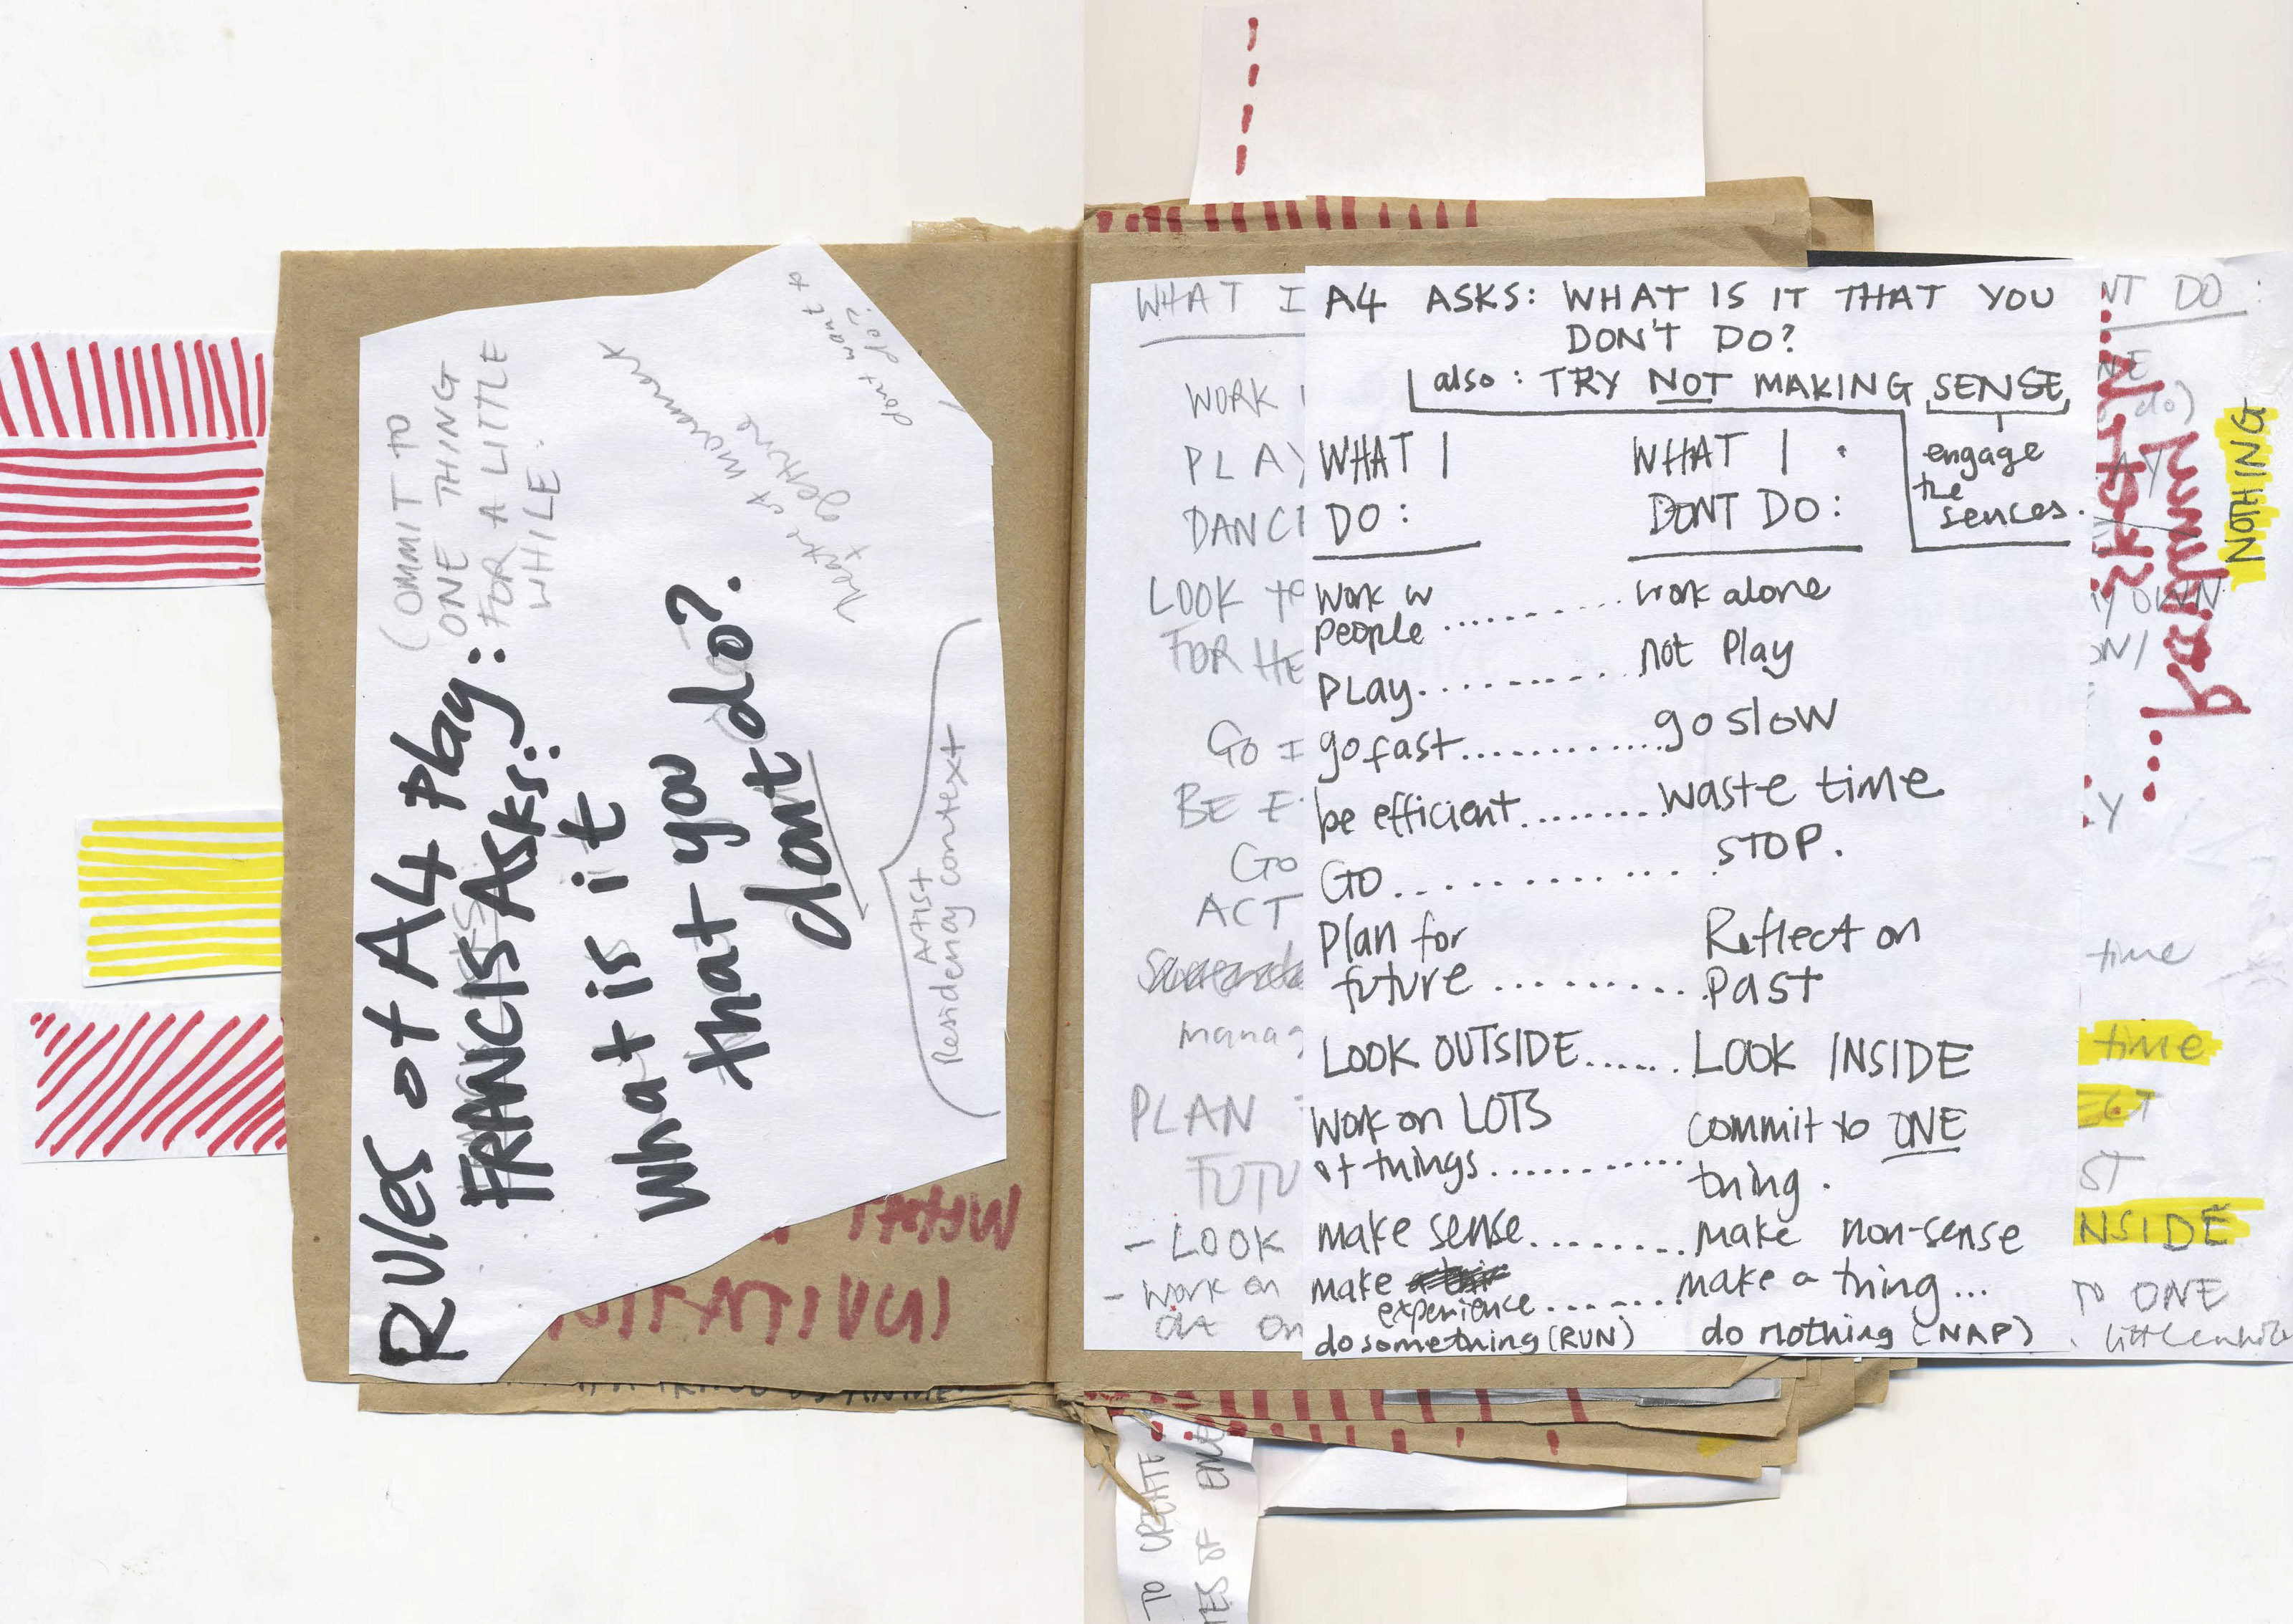 Rules of A4 play:
FRANCIS Asks:
What is it
that you
dont do?.
(COMMIT TO
ONE THING
FOR A LITTLE
WHILE.
dont want to
do?
Artist
Residency context
WHAT
INVITATI
A4 ASKS: WHAT IS IT THAT YOU
DON'T DO?
also: TRY NOT MAKING SENSE
engage
the
sences.
WHAT I
DO:
WHAT I
DONT DO:
Work w
people .......... work alone
PLAY............ not Play
go fast............ go slow
be efficient......... waste time
GO.............. STOP.
Plan for
future .......... Reflect on
Past
LOOK OUTSIDE...... LOOK INSIDE
Work on LOTS
of things........... commit to ONE
thing.
make sense......... make non-sense
make
experience....... make a thing...
do something (RUN) do nothing (NAP)
WHAT I
WORK
PLAY
DANCI
LOOK to
FOR HE
GO I
BE E
GO
ACT
manag
PLAN
FUTU
- LOOK
- Work on
NT DO:
do)
NOTHING
MY OWN
Y
time
time
ECT
ST
NSIDE
TO ONE
little while
TO CREATE
TES OF